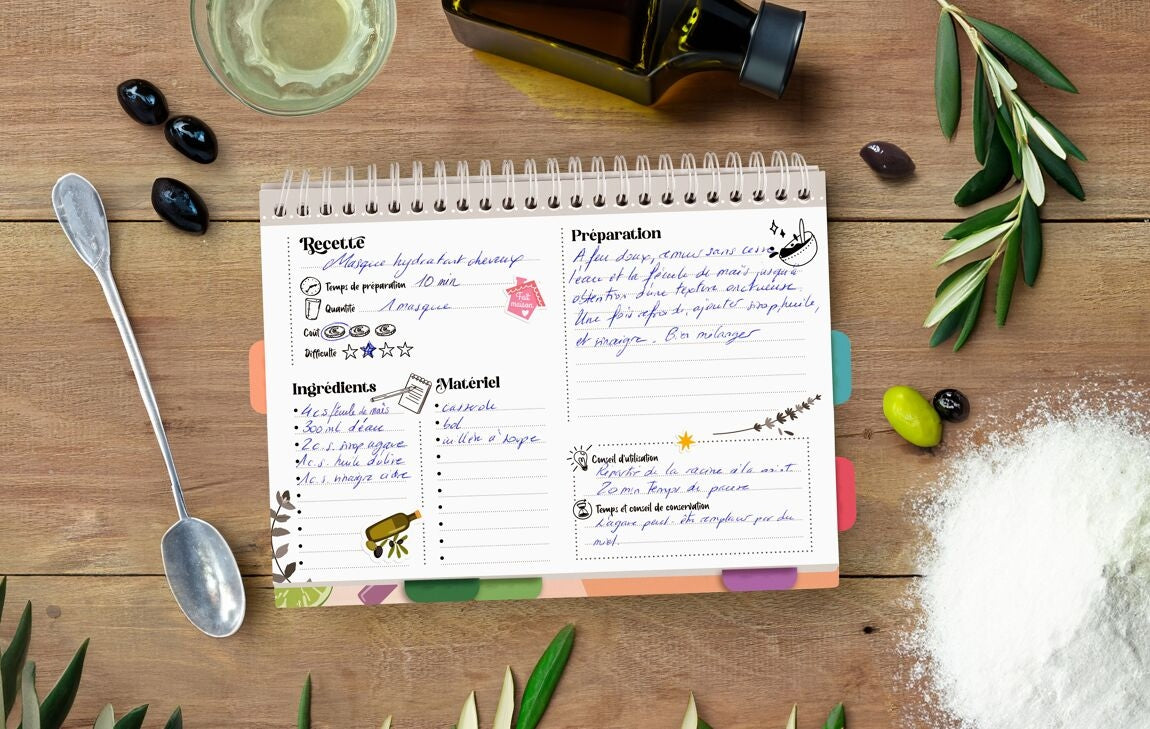 Recette
Masque hydratant cheveux
Temps de préparation 10 min
Quantité 1 masque
Coût
Difficulté
Fait maison
Ingrédients
4 c.s fécule de maïs
300 ml d'eau
2 c.s. sirop agave
1 c.s. huile d'olive
1 c.s. vinaigre cidre
Matériel
casserole
bol
cuillère à soupe
Préparation
A feu doux, remuer sans cesse
l'eau et la fécule de maïs jusqu'à
obtention d'une texture onctueuse.
Une fois refroidi, ajouter sirop, huile,
et vinaigre. Bien mélanger
Conseil d'utilisation
Répartir de la racine à la
20 min Temps de pause
Temps et conseil de conservation
L'agave peut être remplacé par du
miel.